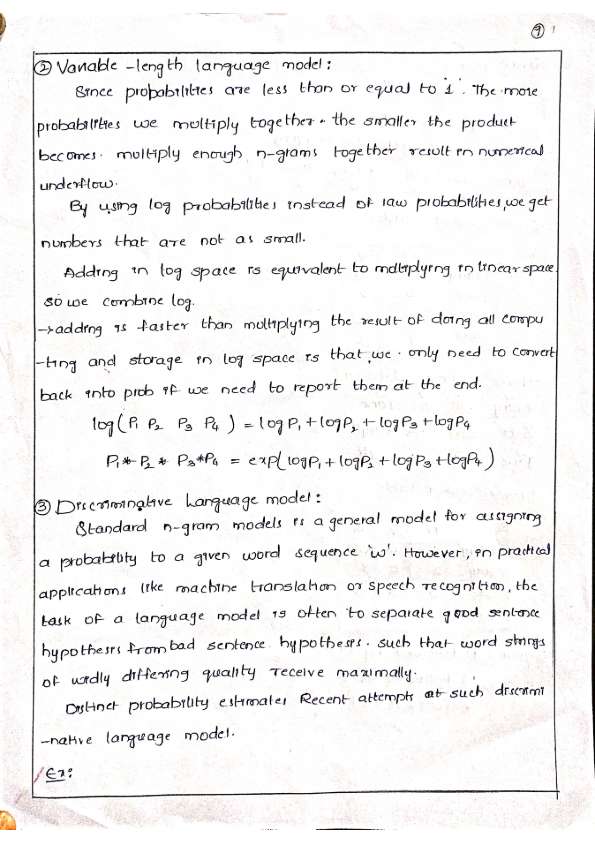 9
② Variable -length language model:
Since probabilities are less than or equal to '1'. The more
probabilities we multiply together. the smaller the product
becomes. multiply enough n-grams together result in numerical
underflow.
By using log probabilities instead of raw probabilities, we get
numbers that are not as small.
Adding in log space is equivalent to multiplying in linear space.
so we combine log.
→ adding is faster than multiplying the result of doing all compu
-ting and storage in log space is that we. only need to convert
back into prob if we need to report them at the end.
log(P1 P2 P3 P4) = log P1 + log P2 + log P3 + log P4
P1 * P2 * P3 * P4 = exp(log P1 + log P2 + log P3 + log P4)
③ Discriminative Language model:
Standard n-gram models is a general model for assigning
a probability to a given word sequence 'w'. However, in practical
applications like machine translation or speech recognition, the
task of a language model is often to separate good sentence
hypothesis from bad sentence hypothesis. such that word strings
of widly differing quality receive maximally.
Distinct probability estimates Recent attempts at such discrimi
-native language model.
Ex: